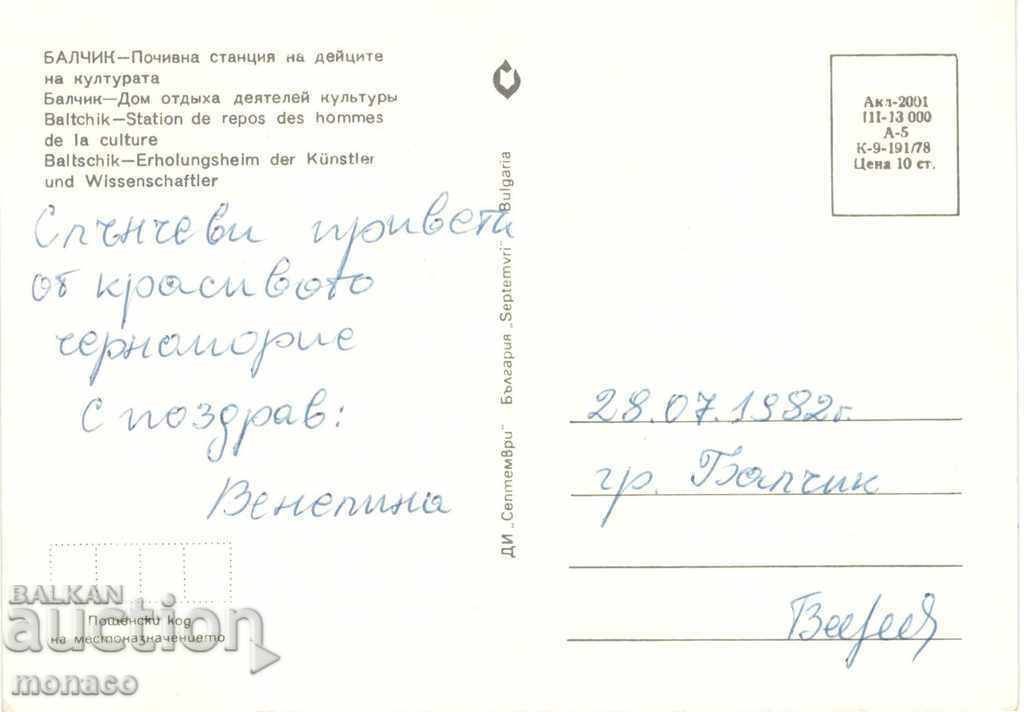 БАЛЧИК—Почивна станция на дейците
на културата
Балчик—Дом отдыха деятелей культуры
Baltchik—Station de repos des hommes
de la culture
Baltschik—Erholungsheim der Künstler
und Wissenschaftler
Слънчеви привети
от красивото
черноморие
С поздрав:
Венелина
Пощенски код
на местоназначението
ДИ „Септември" България „Septemvri" Bulgaria
Акл-2001
III-13 000
А-5
К-9-191/78
Цена 10 ст.
28.07.1982г.
гр. Балчик
BALKAN
auction
monaco